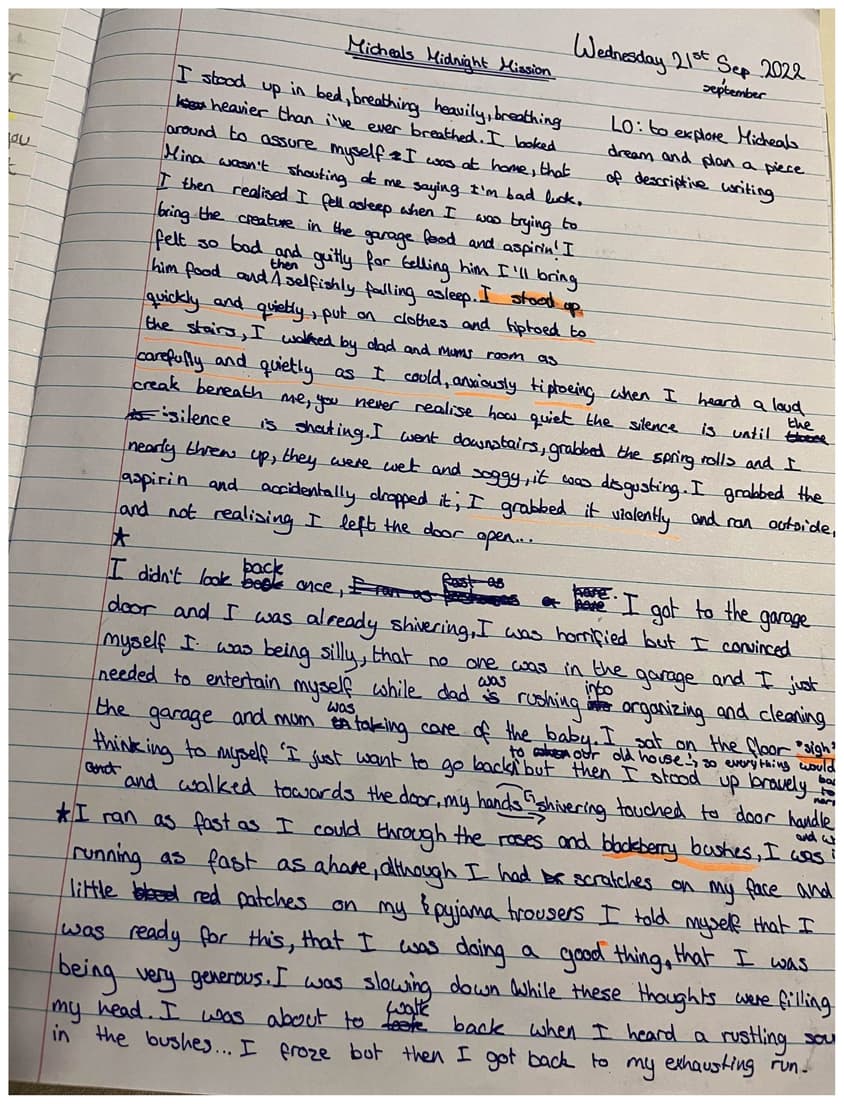 Micheals Midnight Mission
Wednesday 21st Sep 2022
september
LO: to explore Micheals
dream and plan a piece
of descriptive writing
I stood up in bed, breathing heavily, breathing
heavier than i've ever breathed. I looked
around to assure myself I was at home, that
Mina wasn't shouting at me saying I'm bad luck.
I then realised I fell asleep when I was trying to
bring the creature in the garage food and aspirin! I
felt so bad and guitly for telling him I'll bring
him food and then selfishly falling asleep. I stood up
quickly and quietly, put on clothes and tiptoed to
the stairs, I walked by dad and mums room as
carefully and quietly as I could, anxiously tiptoeing when I heard a loud
creak beneath me, you never realise how quiet the silence is until the
silence is shouting. I went downstairs, grabbed the spring rolls and I
nearly threw up, they were wet and soggy, it was disgusting. I grabbed the
aspirin and accidentally dropped it; I grabbed it violently and ran outside,
and not realising I left the door open...
★
I didn't look back once, I got to the garage
door and I was already shivering, I was horrified but I convinced
myself I was being silly, that no one was in the garage and I just
needed to entertain myself while dad was rushing into organizing and cleaning
the garage and mum was taking care of the baby. I sat on the floor *sigh*
thinking to myself 'I just want to go back to our old house!, so everything would
but then I stood up bravely
and walked towards the door, my hands shivering touched to door handle
★ I ran as fast as I could through the roses and blackberry bushes, I was
running as fast as a hare, although I had scratches on my face and
little red patches on my pyjama trousers I told myself that I
was ready for this, that I was doing a good thing, that I was
being very generous. I was slowing down while these thoughts were filling
my head. I was about to walk back when I heard a rustling sou
in the bushes... I froze but then I got back to my exhausting run.